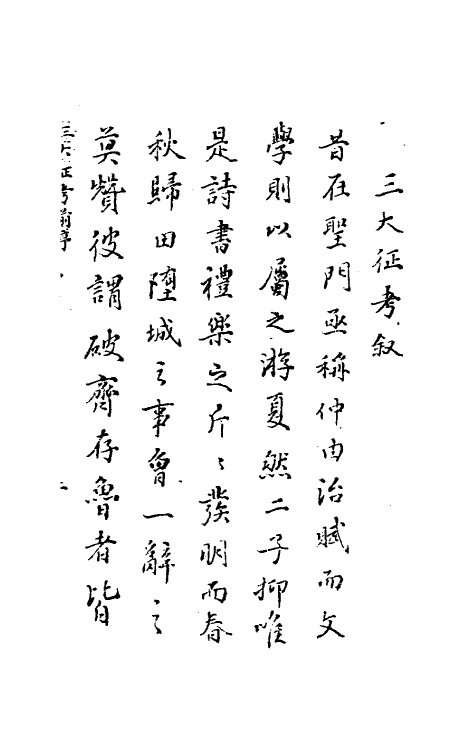 三大征考叙
昔在聖門亟稱仲由治賦而文
學則以屬之游夏然二子抑唯
是詩書禮樂之斤〻發明而春
秋歸田墮城之事曾一辭之
莫贊彼謂破齊存魯者皆
三大征考